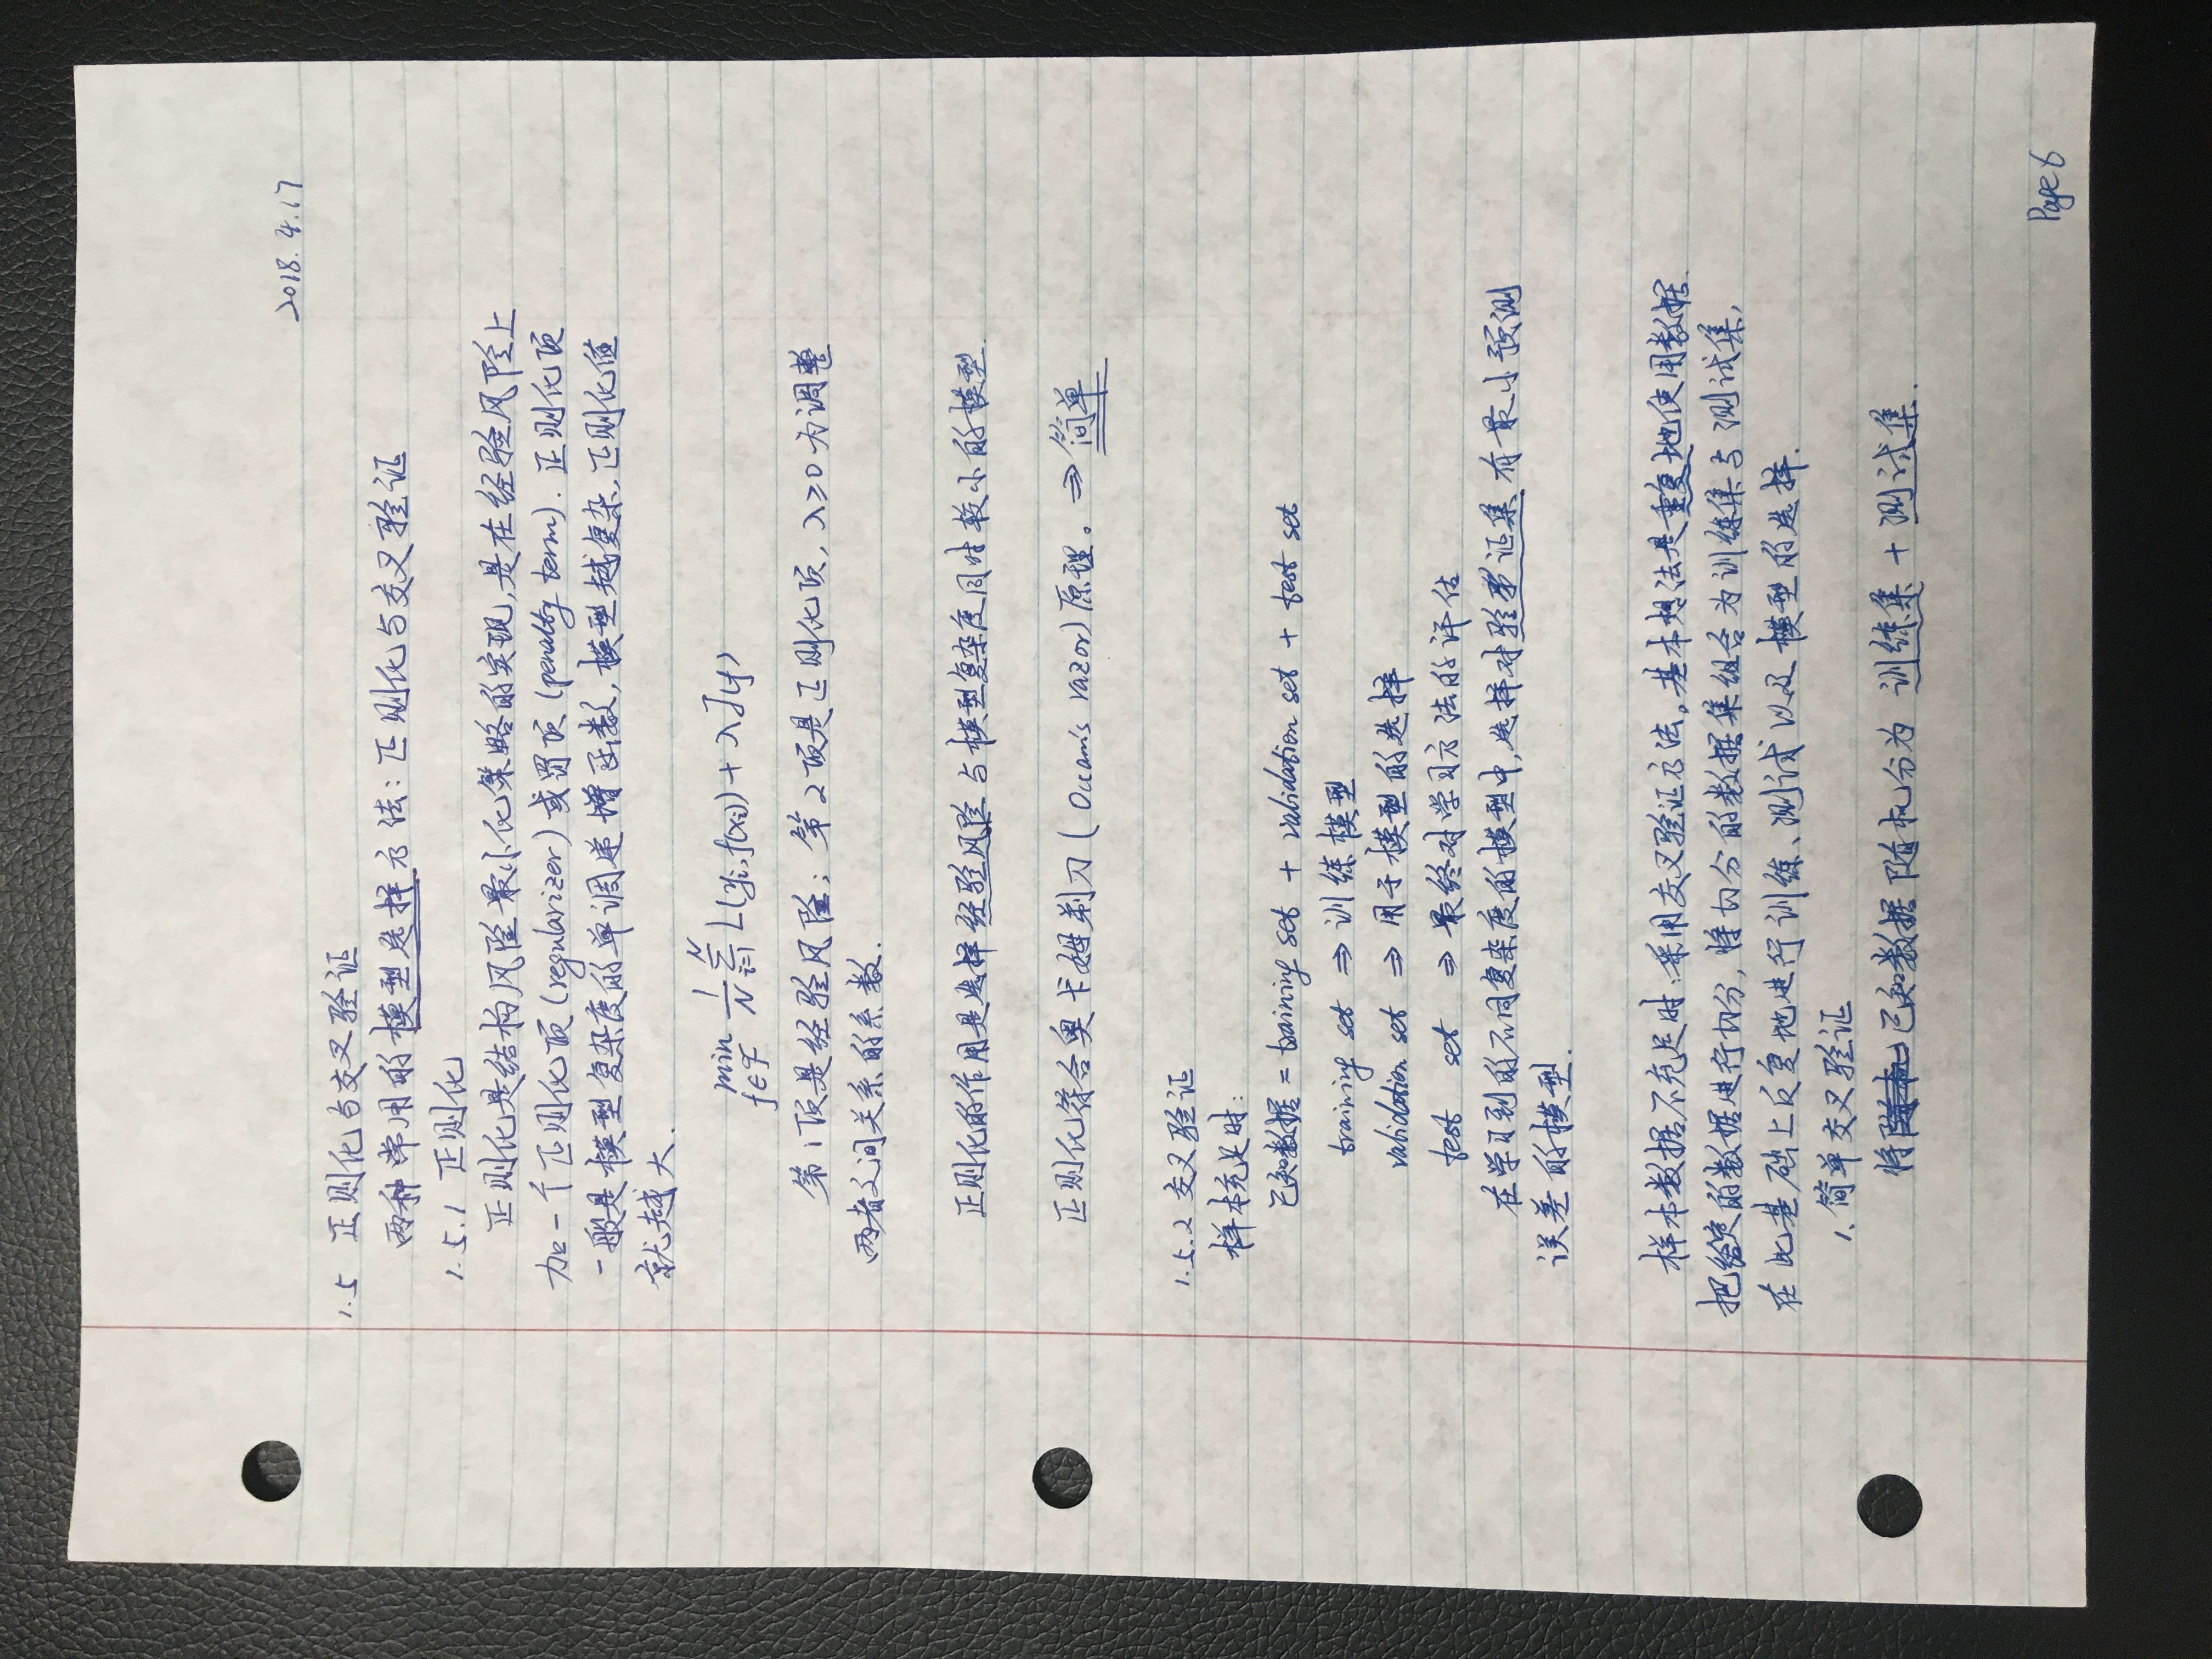 2018.4.17
1.5 正则化与交叉验证
两种常用的模型选择方法:正则化与交叉验证
1.5.1 正则化
正则化是结构风险最小化策略的实现,是在经验风险上
加一个正则化项(regularizer)或罚项(penalty term). 正则化项
一般是模型复杂度的单调递增函数,模型越复杂,正则化值
就越大.
min f∈F 1/N Σ i=1 N L(yi, f(xi)) + λJ(f)
第1项是经验风险; 第2项是正则化项, λ≥0为调整
两者之间关系的系数.
正则化的作用是选择经验风险与模型复杂度同时较小的模型.
正则化符合奥卡姆剃刀(Occam's razor)原理。⇒简单
1.5.2 交叉验证
样本充足时:
已知数据 = training set + validation set + test set
training set ⇒ 训练模型
validation set ⇒ 用于模型的选择
test set ⇒ 最终对学习方法的评估
在学习到的不同复杂度的模型中,选择对验证集有最小预测
误差的模型.
样本数据不充足时:采用交叉验证方法。基本想法是重复地使用数据.
把给定的数据进行切分, 将切分的数据集组合为训练集与测试集,
在此基础上反复地进行训练、测试以及模型的选择.
1. 简单交叉验证
将已知数据随机分为 训练集 + 测试集.
Page 6